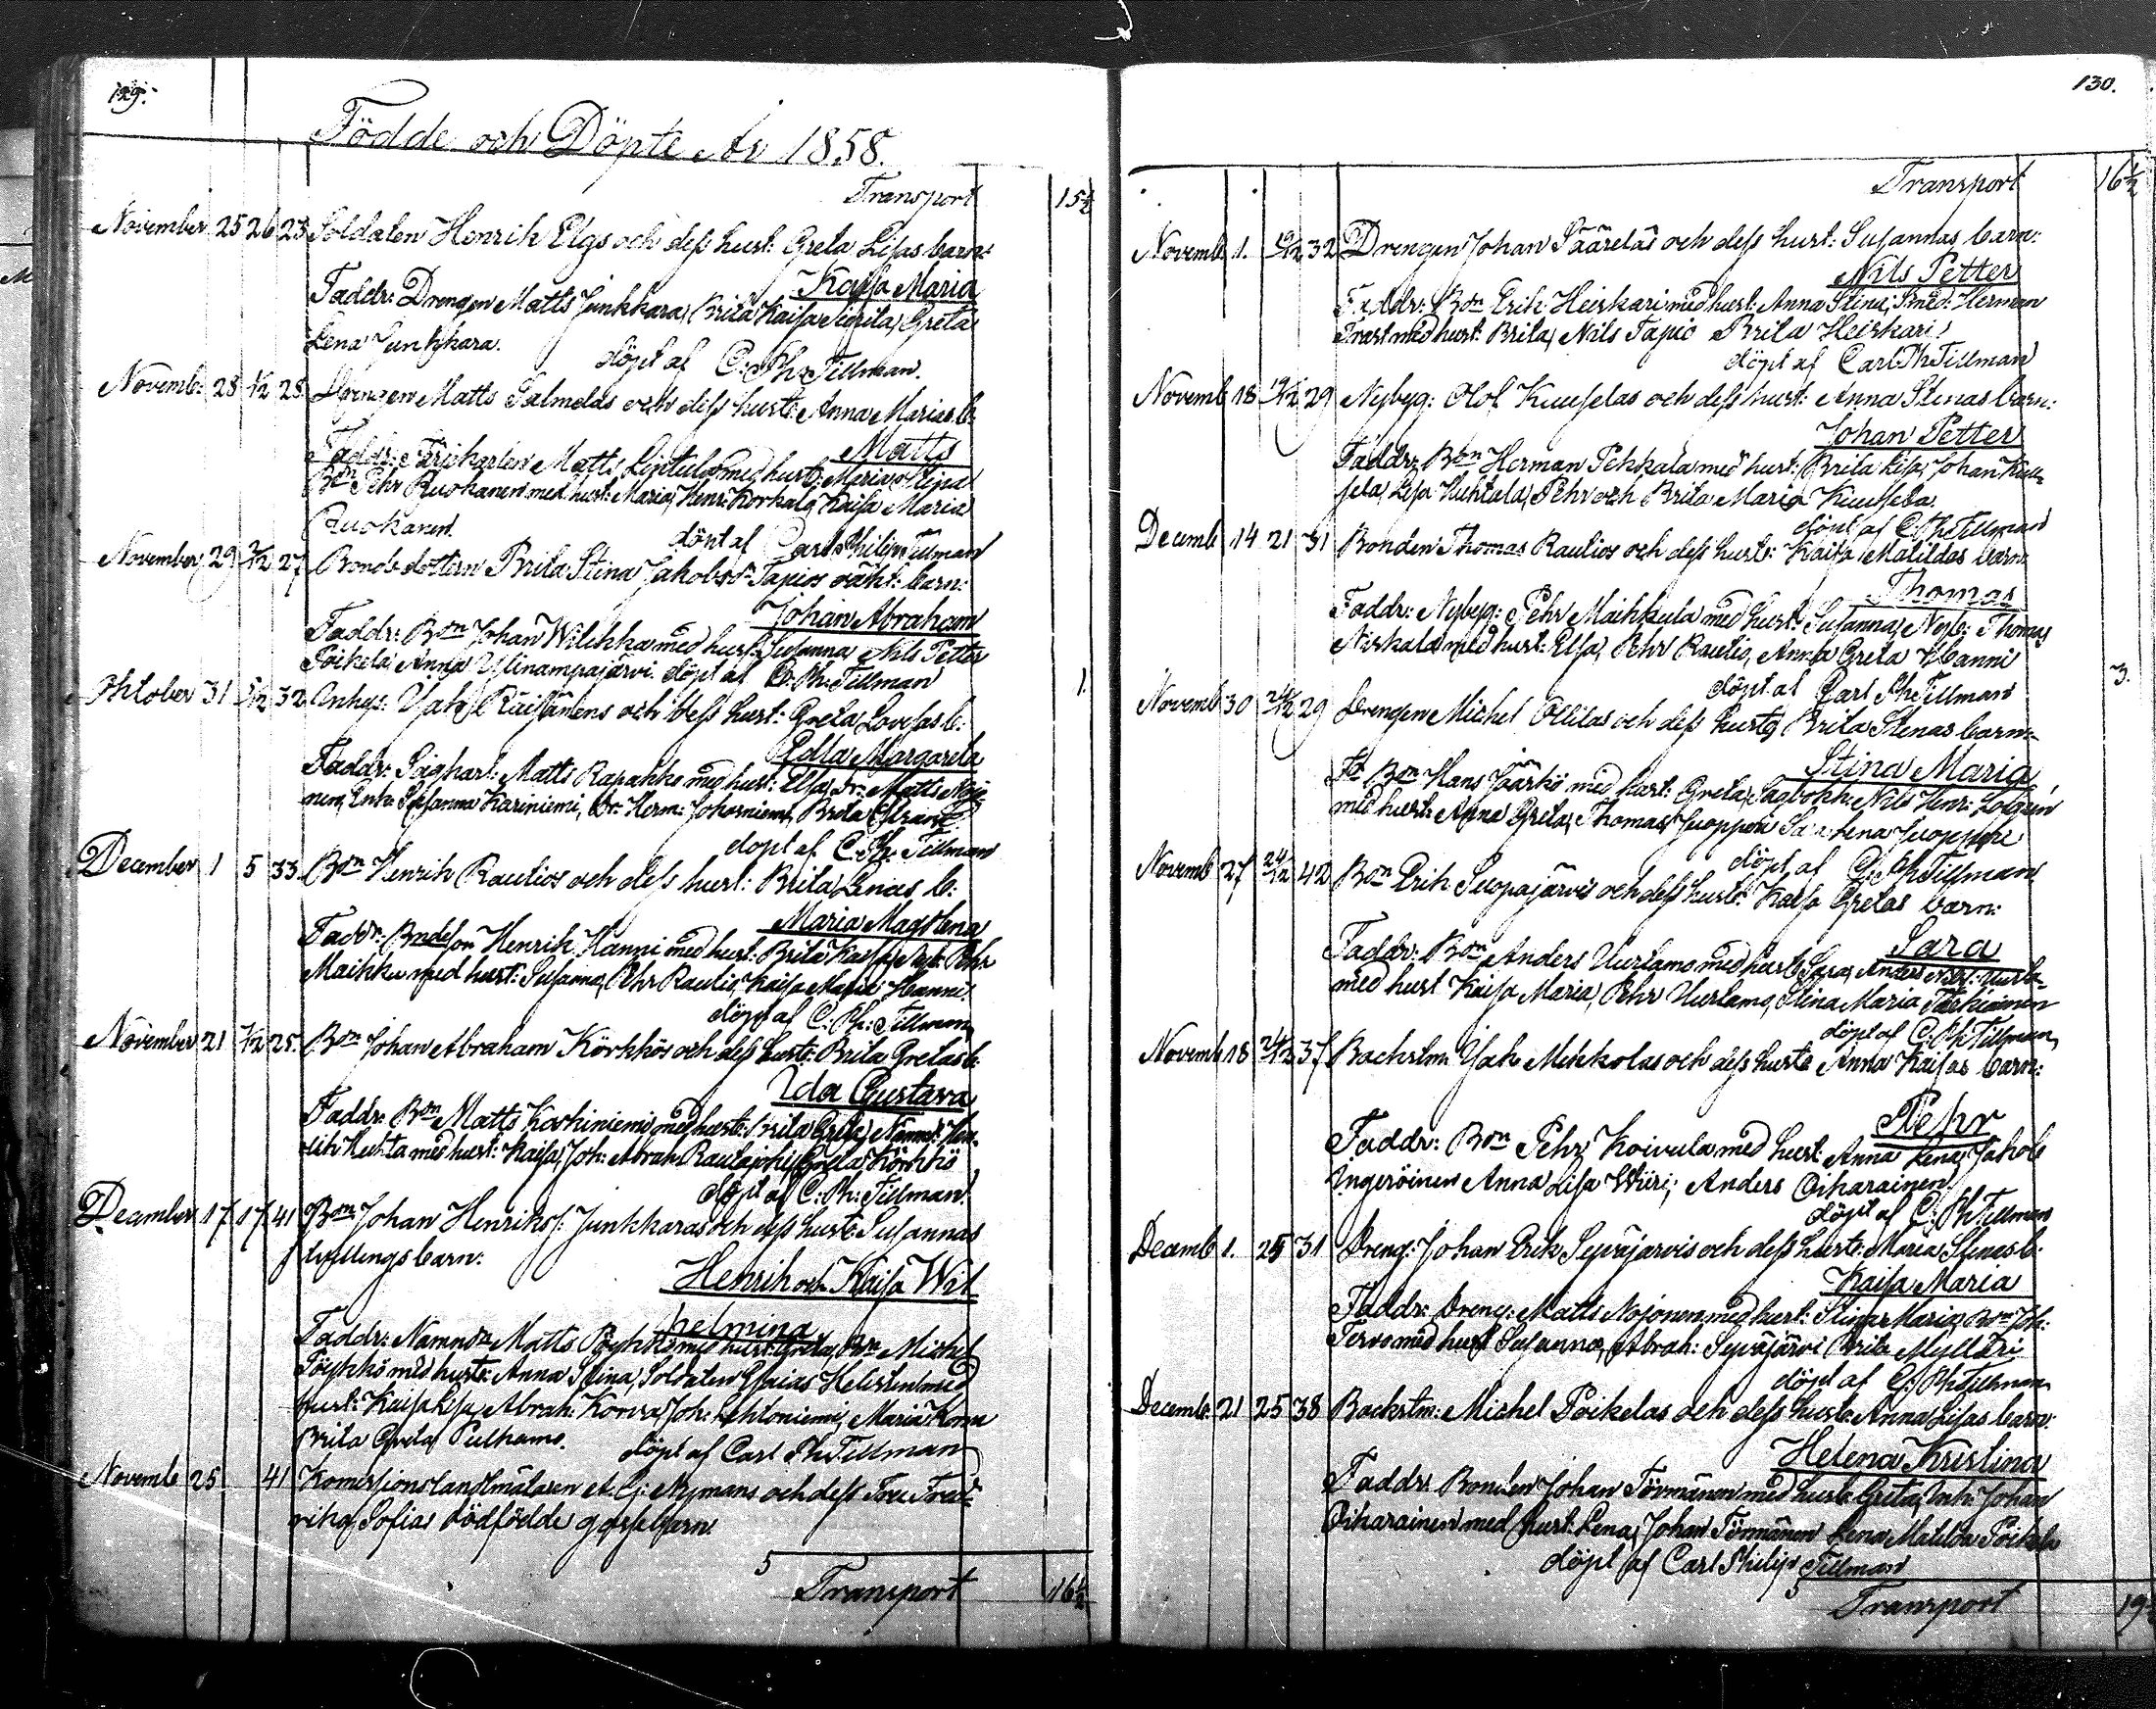 129.
Födde och Döpte År 1858.
Transport 15½
November 25 26 23 Soldaten Henrik Elgs och dess hust: Greta Lisas barn:
Kaisa Maria
Faddr: Drengen Matts Junkkara, Brita Kaisa Greta
Lena Junkkara.
döpt af C: Ph: Tillman.
Novemb: 28 1/12 28 Drengen Matts Salmelas och dess hust: Anna Marias b:
Matts
Faddr: Matts Lintula med hust: Maria Stina
Bdn Pehr Ruokanen med hust: Maria, Henr: Korkala, Kaisa Maria
Ruokanen.
döpt af Carl Philip Tillman
November 29 2/12 27 Bonde dottern Brita Stina Jakobsdr Tapios oäkt: barn:
Johan Abraham
Faddr: Bdn Johan Wilikka med hust: Susanna Nils Petter
Poikela, Anna Ylinampajärvi. döpt af C: Ph: Tillman 1.
Oktober 31 5/12 32 Inhys: Jak: Räisänens och dess hust: Greta Lovisas b:
Edla Margareta
Faddr: Matts Rapakko med hust: Elsa, Dr: Matts Nojo
nen, Enk: Susanna Kariniemi, Dr: Herm: Brita
döpt af C: Ph: Tillman
December 1 5 33 Bdn Henrik Rautios och dess hust: Brita Lenas b:
Maria Magdlena
Faddr: Bndeson Henrik Hanni med hust: Brita Kaisa, Pehr
Maikku med hust: Susanna, Pehr Rautio, Kaisa Maria Hanni
döpt af C: Ph: Tillman
November 21 7/12 25. Bdn Johan Abraham Körkkös och dess hust: Brita Gretas b:
Ida Gustava
Faddr: Bdn Matts Koskiniemi med hust: Brita Greta, Nämnd: Hen-
rik Huhta med hust: Kaisa, Joh: Abrah: Greta Körkkö
döpt af C: Ph: Tillman.
December 17 17 41 Bdn Johan Henrikss: Junkkaras och dess hust: Susannas
tvillingsbarn:
Henrik och Kaisa Wil-
helmina
Faddr: Nämndn Matts Pöykkö med hust: Greta, Bdn Michel
Pöykkö med hust: Anna Stina, Soldaten Esaias med
hust: Kaisa Lisa, Abrah: Korva, Joh: Lehtoniemi, Maria Korva
Brita Greta
döpt af Carl Ph: Tillman
Novemb 25 41 Komissionslandtmätaren Nymans och dess Fru Fred-
rika Sofias dödfödde gossebarn.
5
Transport 16½
130.
Transport 16½
Novemb 1. 19/12 32 Drengen Johan Säärelas och dess hust: Susannas barn:
Nils Petter
Faddr: Bdn Erik Heiskari med hust: Anna Stina, Smed: Herman
Trast med hust: Brita, Nils Tapio Brita Heiskari,
döpt af Carl Ph Tillman
Novemb 18 19/12 29 Nybyg: Olof Kuuselas och dess hust: Anna Stinas barn:
Johan Petter
Faddr: Bdn Herman Pekkala med hust: Brita Lisa, Johan Kuu-
sela, Lisa Huhtala, Pehr och Brita Maria Kuusela
döpt af C: Ph: Tillman
Decemb 14 21 31 Bonden Thomas Rautios och dess hust: Kaisa Matildas barn
Thomas
Faddr: Nybyg: Pehr Maikkula med hust: Susanna, Nyb: Thomas
Niskala med hust: Elsa, Pehr Rautio, Anna Greta Hanni 3.
döpt af Carl Ph Tillman
Novemb 30 24/12 29 Drengen Michel Ollilas och dess hust: Brita Stinas barn:
Stina Maria
Fd: Bdn Hans Jäärkö med hust: Greta, Nils Henr:
med hust: Anna Greta, Thomas Juopperi Sara Lena Juopperi
döpt af C: Ph: Tillman
Novemb 27 24/12 42 Bdn Erik Suopajärvis och dess hust: Kaisa Gretas barn:
Sara
Faddr: Bdn Anders Uurtamo med hust: Sara, Anders
med hust Kaisa Maria, Pehr Uurtamo, Stina Maria
döpt af C: Ph: Tillman
Novemb 18 24/12 37 Backstm: Jak: Mikkolas och dess hust: Anna Kaisas barn:
Pehr
Faddr: Bdn Pehr Koivula med hust: Anna Lena, Jakob
Ingeröinen Anna Lisa Wiiri, Anders Oikarainen.
döpt af C: Ph Tillman
Decemb 1. 25 31 Dreng: Johan Erik Syväjärvis och dess hust: Maria Stinas b:
Kaisa Maria
Faddr: Dreng: Matts Nojonen med hust: Stina Maria, Bdn Joh:
Tervo med hust Susanna, Abrah: Syväjärvi Brita Mylläri
döpt af C: Ph: Tillman
Decemb 21 25 38 Backstm: Michel Poikelas och dess hust: Anna Lisas barn:
Helena Kristina
Faddr: Bonden Johan Törmänen med hust: Greta, Inh: Johan
Oikarainen med hust: Lena, Johan Törmänen Lena Matilda Poikela
döpt af Carl Philip Tillman
5
Transport 19.